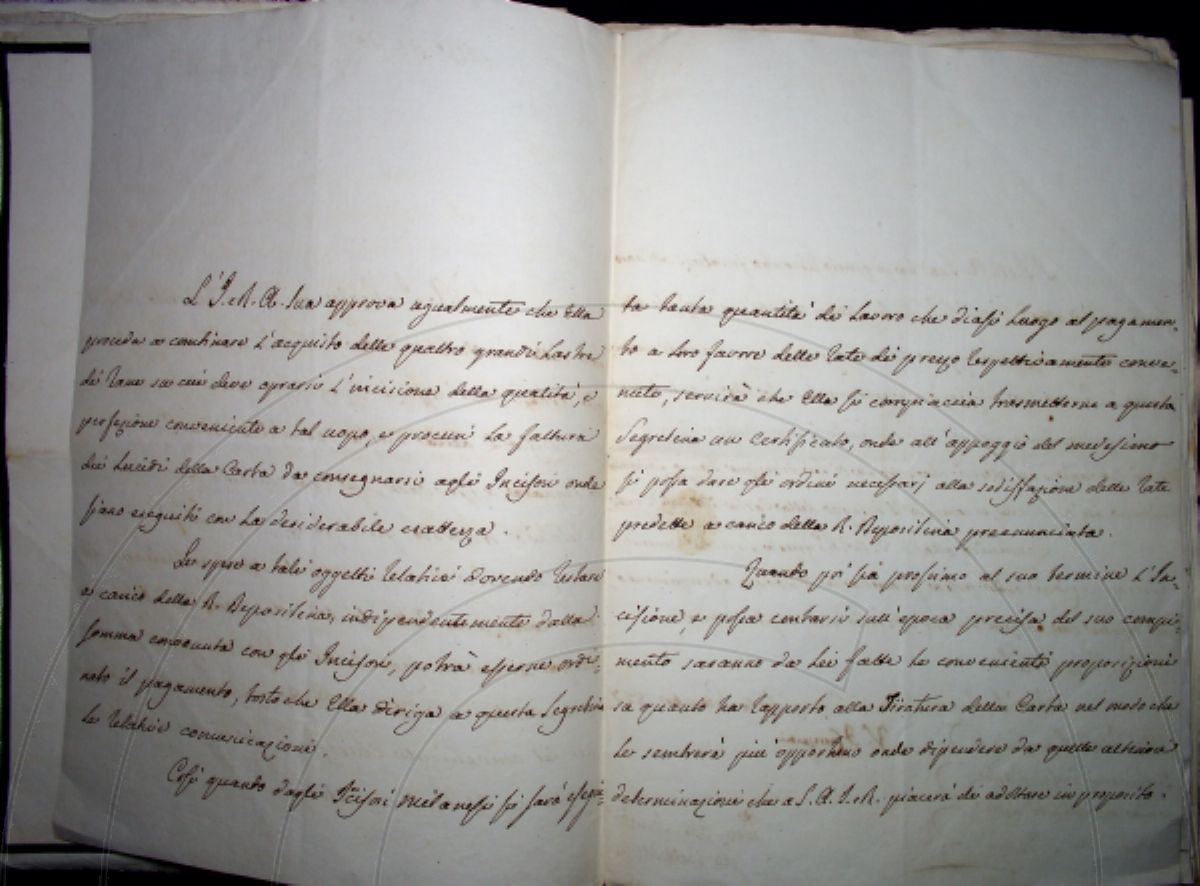 L'I. e R. A. Sua approva ugualmente che Ella
proceda a combinare l'acquisto delle quattro grandi Lastre
di Rame su cui deve oprarsi l'incisione della qualità, e
perfezione conveniente a tal uopo, e procuri la fattura
dei Lucidi della Carta da consegnarsi agli Incisori onde
siano eseguiti con la desiderabile esattezza.
Le spese a tali oggetti relative dovendo restare
a carico della R. Depositeria, indipendentemente dalla
somma convenuta con gli Incisori, potrà esserne ordi-
nato il pagamento, tosto che Ella diriga a questa Segreteria
le relative comunicazioni.
Così quando dagli Incisori milanesi si sarà esegui-
ta tanta quantità di Lavoro che diasi luogo al pagamen-
to a loro favore delle rate di prezzo respettivamente conve-
nuto, servirà che Ella si compiaccia trasmetterne a questa
Segreteria un certificato, onde all'appoggio del medesimo
si possa dare gli ordini necessarj alla sodisfazione delle rate
predette a carico della R. Depositeria preenunciata.
Quando poi sia prossimo al suo termine l'In-
cisione, e possa contarsi sull'epoca precisa del suo compi-
mento saranno da Lei fatte le convenienti proposizioni
su quanto ha rapporto alla Tiratura della Carta nel modo che
Le sembrerà più opportuno onde dipendere da quelle ulteriori
determinazioni che a S. A. I. e R. piacerà di adottare in proposito.